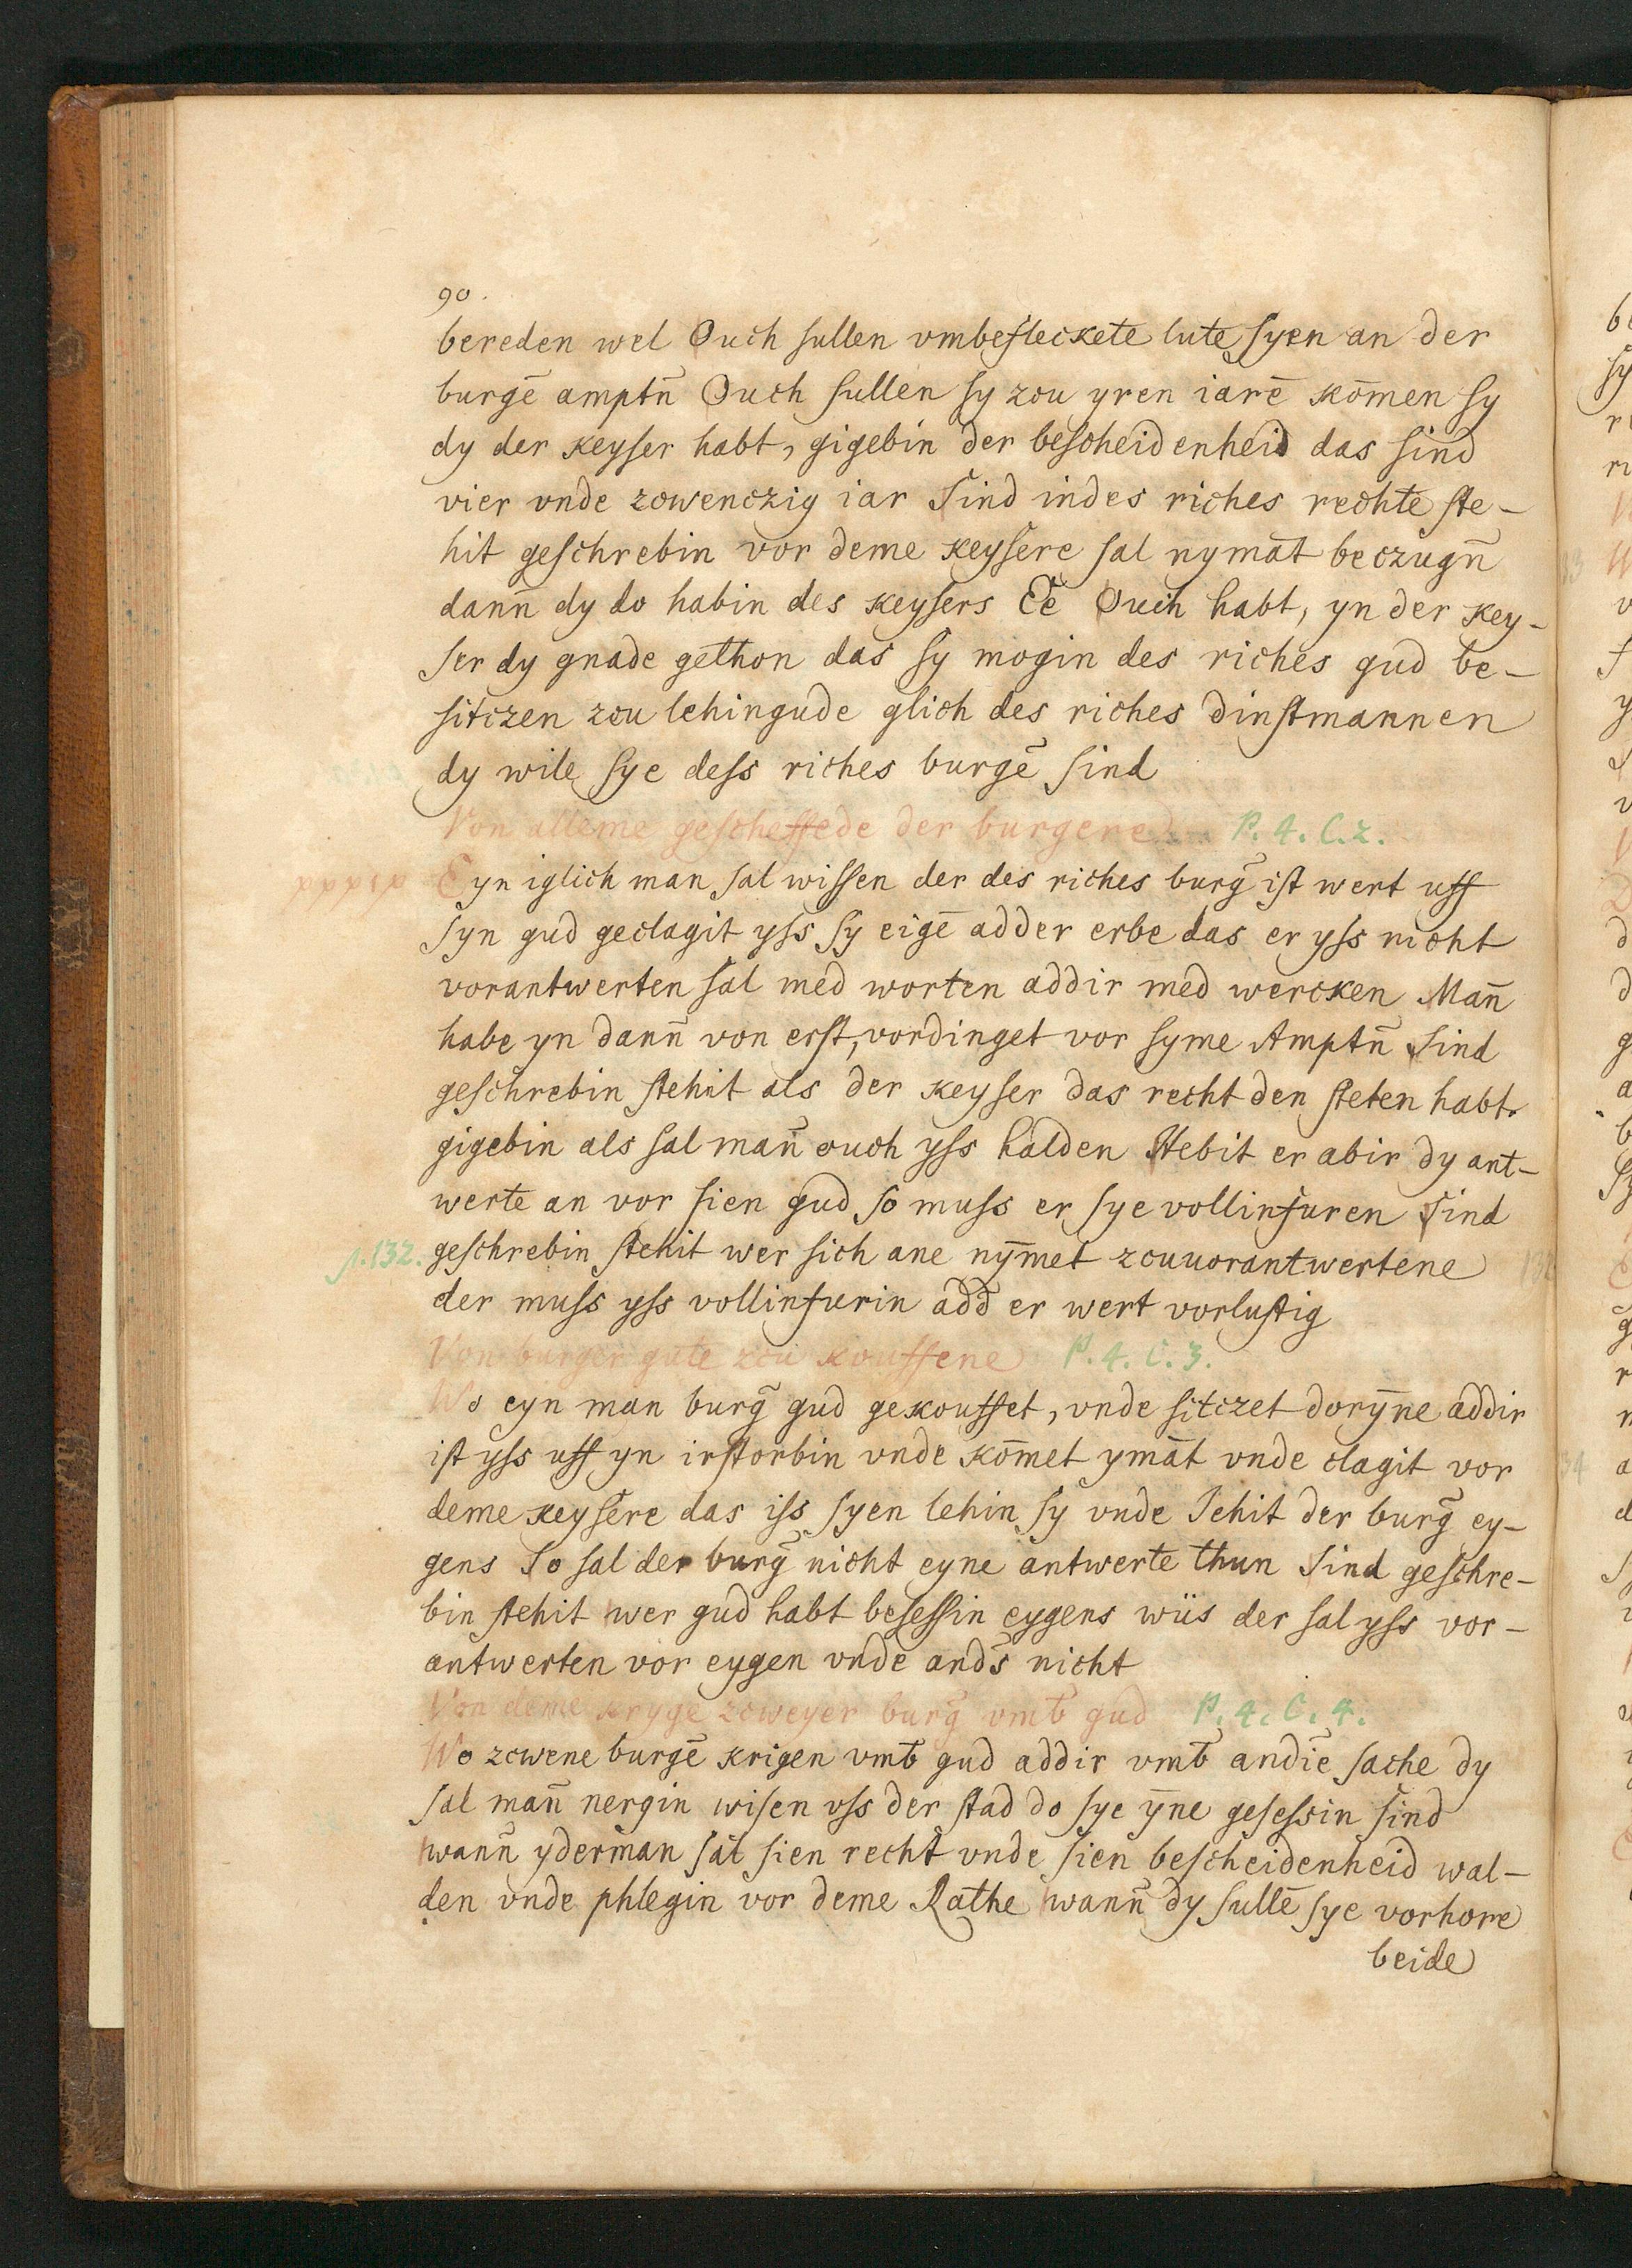 90.
bereden wel Ouch sullen vmbefleckete lute syen an der
burgē amptn̄ Ouch sullen sy zcu yren iarē kōmen sy
dy der keyser habt, gigebin der bescheidenheid das sind
vier vnde zcwenczig iar Sind indes riches rechte ste-
hit geschrebin vor deme keysere sal nymāt beczugn̄
dann̄ dy do habin des keysers Ee Ouch habt, yn der key-
ser dy gnade gethon das sy mogin des riches gud be-
sitczen zcu lehingude glich des riches dinstmannen
dy wile sye dess riches burgē sind
Von alleme gescheffede der burgere P. 4. C. 2.
Eyn iglich man sal wissen der des riches burḡ ist wert uff
syn gud geclagit yss sy eigē adder erbe das er yss nicht
vorantwerten sal med worten addir med wercken Mann̄
habe yn dann̄ von erst, vordinget vor syme Amptn̄ Sind
geschrebin stehit als der keyser das recht den steten habt,
gigebin als sal man̄ ouch yss halden Hebit er abir dy ant-
werte an vor sien gud so muss er sye vollinfuren Sind
p. 132. geschrebin stehit wer sich ane nȳmet zcuuorantwertene
der muss yss vollinfurin add̄ er wert vorlustig
Von burger gute zcu kouffene P. 4. C. 3.
Wo eyn man burḡ gud gekouffet, vnde sitczet dorȳne addir
ist yss uff yn irstorbin vnde kōmet ymāt vnde clagit vor
deme keysere das iss syen lehin sy vnde Jehit der burḡ ey-
gens So sal der burḡ nicht eyne antwerte thun Sind geschre-
bin stehit wer gud habt besessin eygens wiis der sal yss vor-
antwerten vor eygen vnde and̄s nicht
Von deme kryge zcweyer burḡ vmb̄ gud P. 4. C. 4.
Wo zcwene burgē krigen vmb̄ gud addir vmb̄ andīe sache dy
sal man̄ nergin wisen vss der stad do sye ȳne gesessin sind
wann̄ yderman sal sien recht vnde sien bescheidenheid wal-
den vnde phlegin vor deme Rathe wann̄ dy sullē sye vorhore
beide